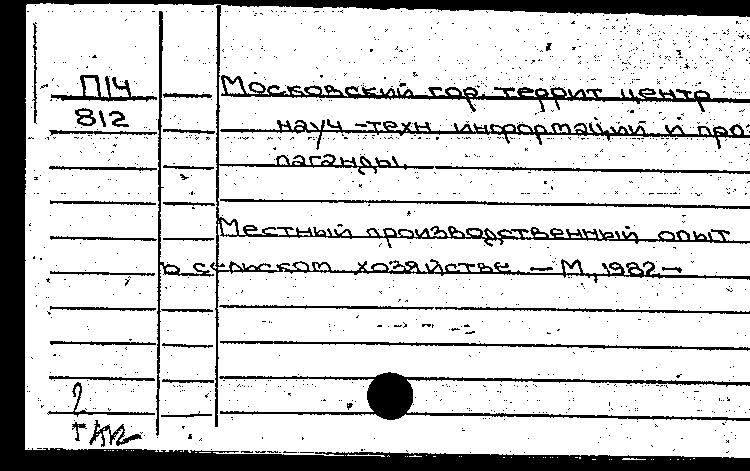 П14 Московский гор. террит центр
812 науч-техн информации и про
паганды.
Местный производственный опыт
в сельском хозяйстве. — М., 1982—
2